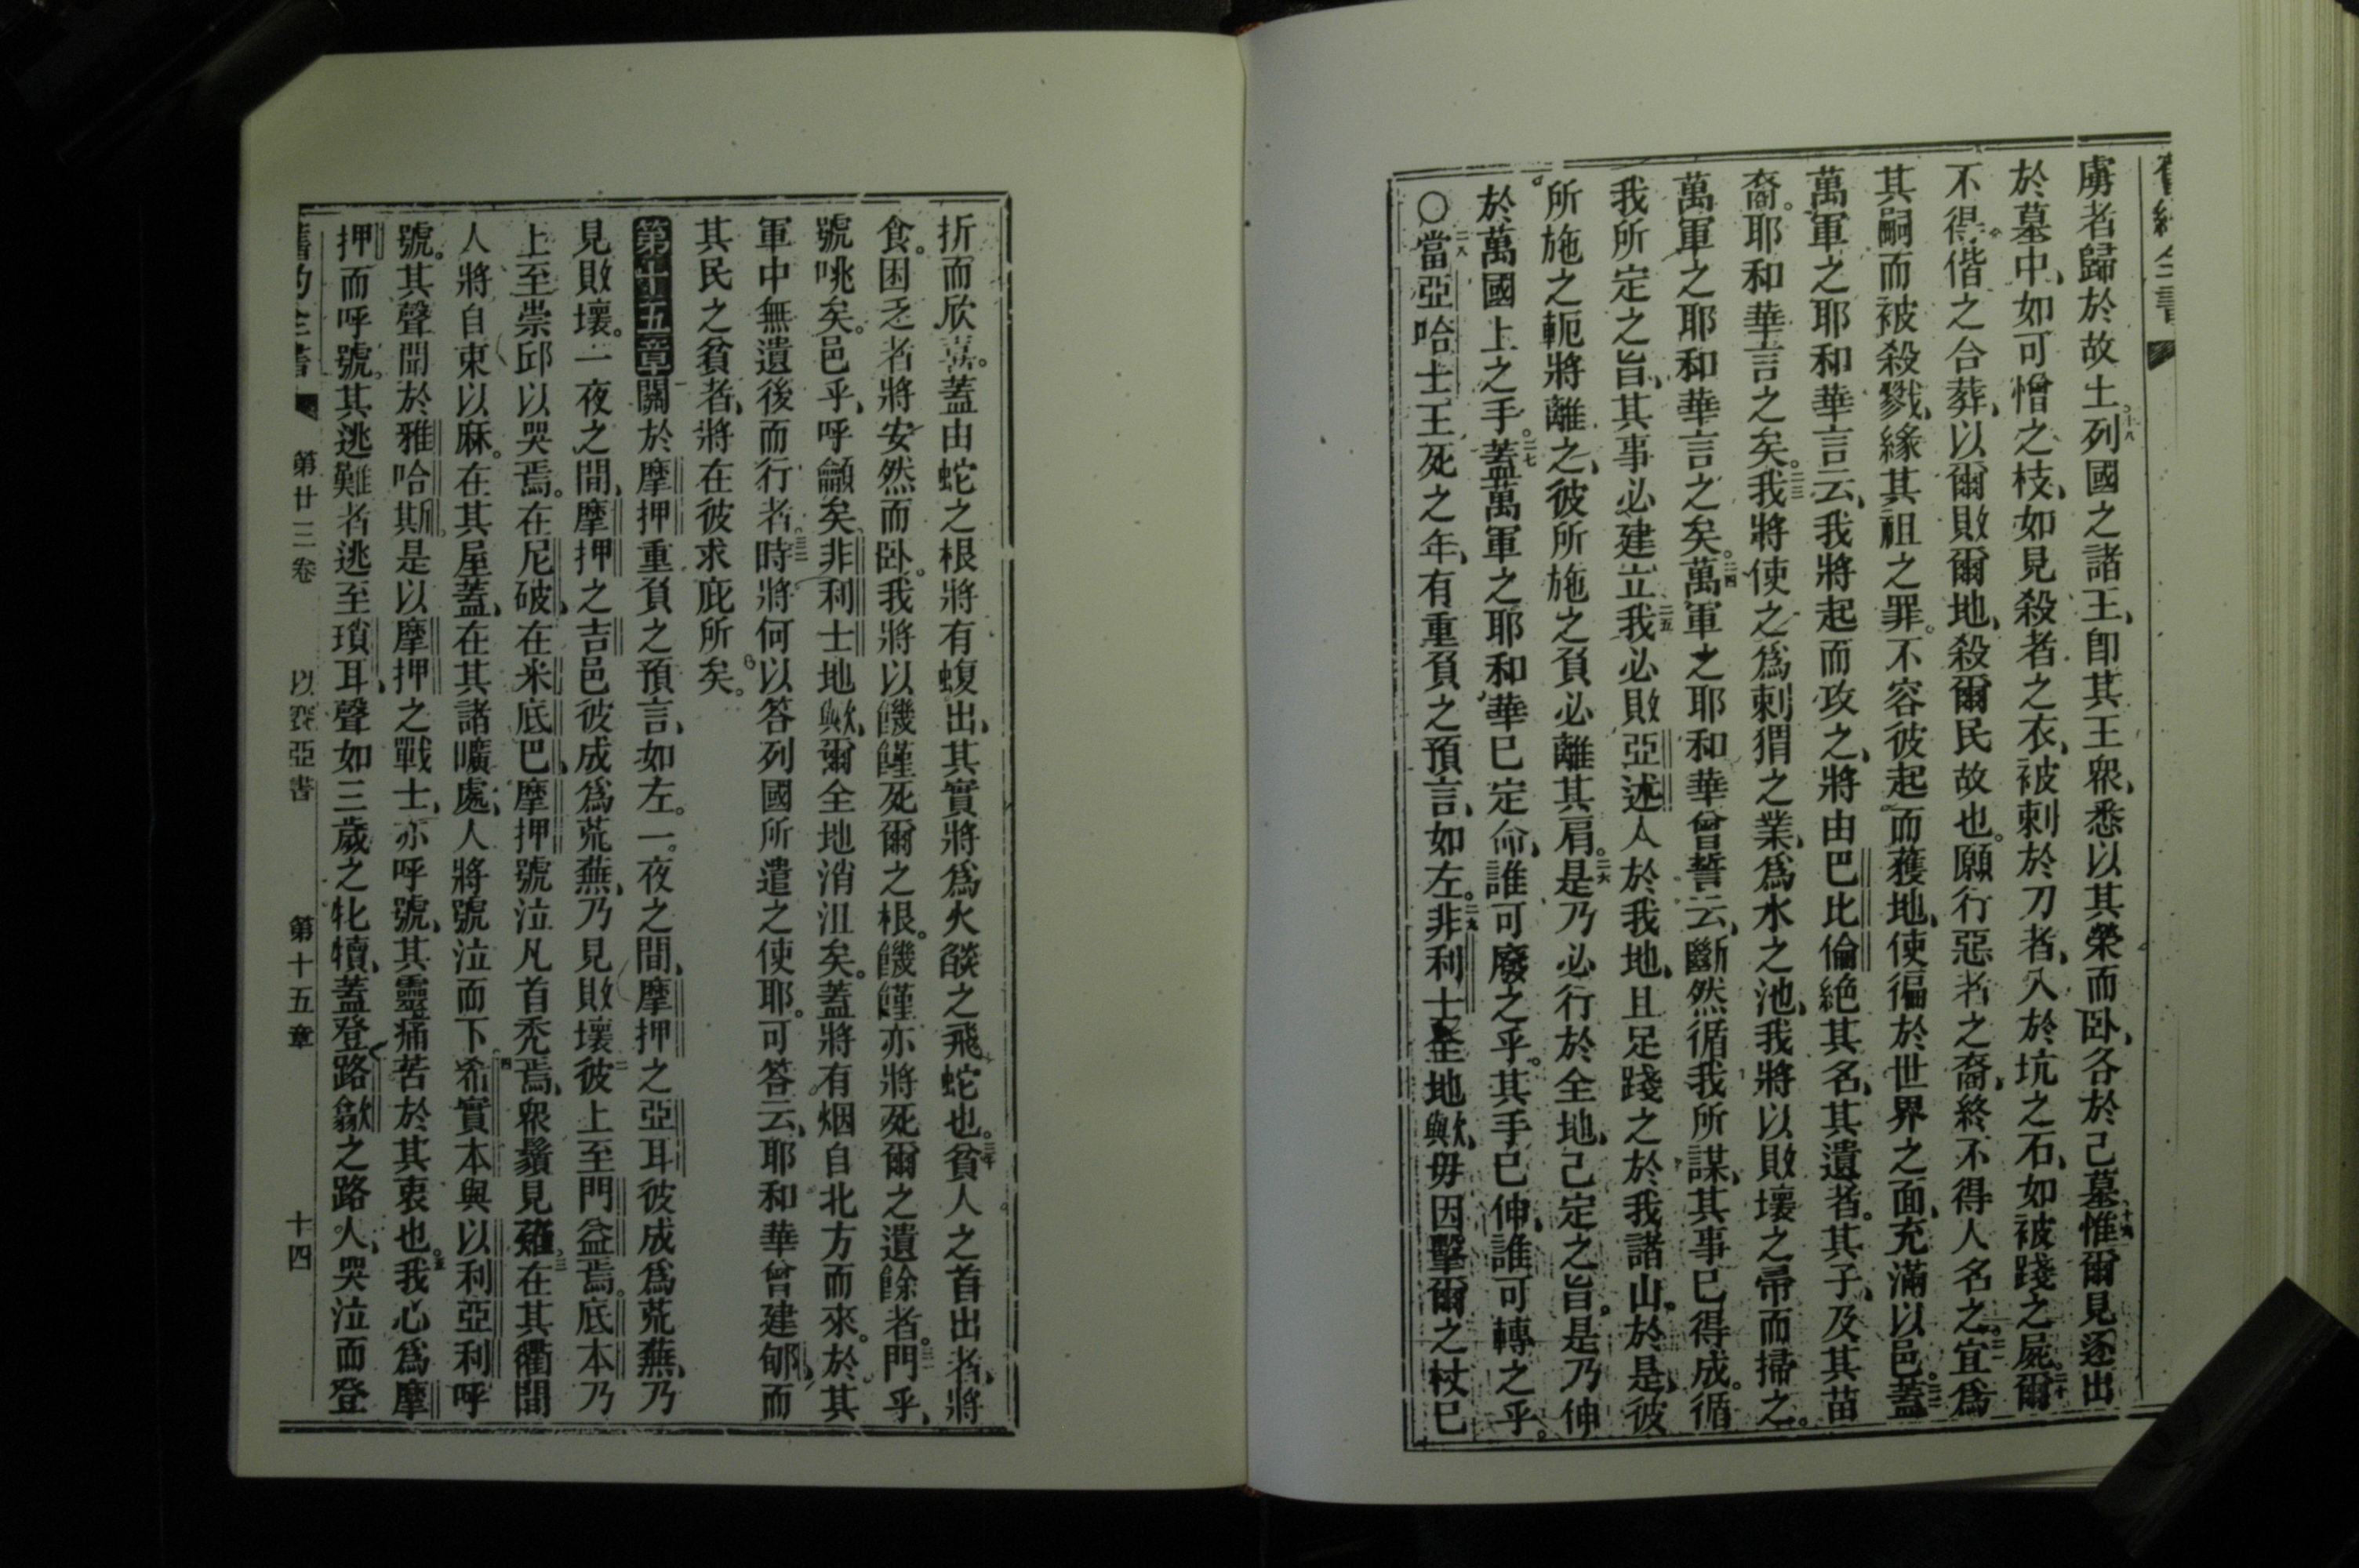 舊約全書
虜者歸於故土。十八列國之諸王、卽其王衆、悉以其榮而卧、各於己墓十九惟爾見逐出
於墓中、如可憎之枝、如見殺者之衣、被刺於刀者、入於坑之石、如被踐之屍。二十爾
不得偕之合葬、以爾敗爾地、殺爾民故也。願行惡者之裔、終不得人名之。二一宜爲
其嗣而被殺戮、緣其祖之罪。不容彼起而獲地、使徧於世界之面、充滿以邑。二二蓋
萬軍之耶和華言云、我將起而攻之、將由巴比倫絕其名、其遺者。其子、及其苗
裔。耶和華言之矣。二三我將使之爲刺猬之業、爲水之池、我將以敗壞之帚而掃之。
萬軍之耶和華言之矣。二四萬軍之耶和華曾誓云、斷然循我所謀、其事已得成。循
我所定之旨、其事必建立二五我必敗亞述人於我地、且足踐之於我諸山。於是、彼
所施之軛將離之、彼所施之負必離其肩。二六是乃必行於全地、己定之旨。是乃伸
於萬國上之手。二七蓋萬軍之耶和華已定命、誰可廢之乎。其手已伸、誰可轉之乎。
○二八當亞哈士王死之年、有重負之預言、如左。二九非利士全地歟、毋因擊爾之杖已
折而欣喜。蓋由蛇之根將有蝮出、其實將爲火燄之飛蛇也。三十貧人之首出者、將
食。困乏者將安然而卧。我將以饑饉死爾之根。饑饉亦將死爾之遺餘者。三一門乎、
號咷矣。邑乎、呼龥矣、非利士地歟、爾全地消沮矣。蓋將有烟自北方而來。於其
軍中無遺後而行者。三二時將何以答列國所遣之使耶。可答云、耶和華曾建郇而
其民之貧者、將在彼求庇所矣。
第十五章關於摩押重負之預言、如左。一。夜之間、摩押之亞耳彼成爲荒蕪、乃
見敗壞。一夜之間、摩押之吉邑彼成爲荒蕪、乃見敗壞二彼上至門益焉。底本乃
上至崇邱以哭焉。在尼破、在米底巴、摩押號泣凡首禿焉、衆鬚見薙、三在其衢間
人將自束以麻。在其屋蓋、在其諸曠處、人將號泣而下四希實本與以利亞利呼
號。其聲聞於雅哈斯。是以摩押之戰士、亦呼號、其靈痛苦於其衷也。五我心爲摩
押而呼號。其逃難者逃至瑣耳、聲如三歲之牝犢、蓋登路歙之路人、哭泣而登
舊約全書 第廿三卷 以賽亞書 第十五章 十四